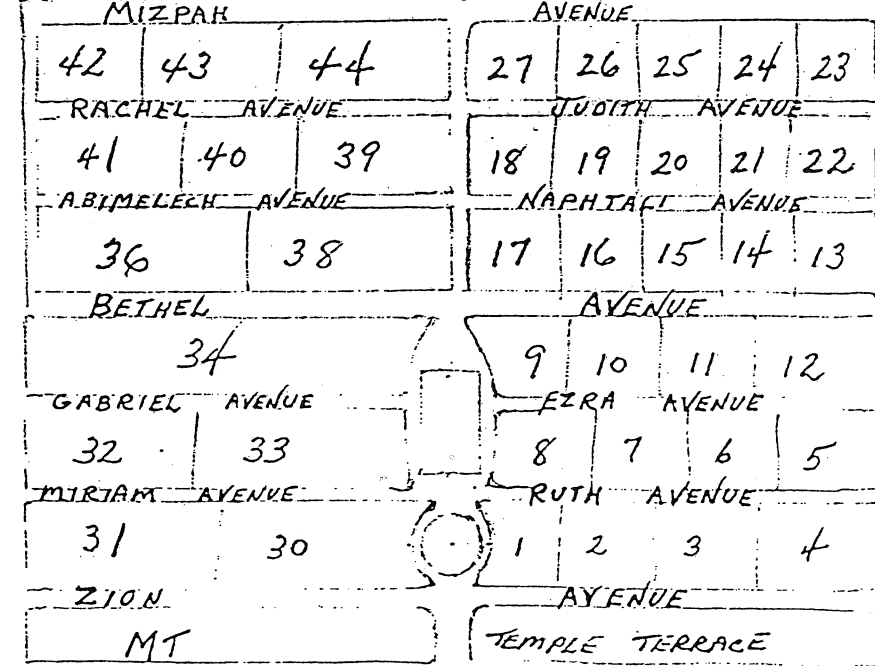 MIZPAH AVENUE
42 43 44 27 26 25 24 23
RACHEL AVENUE JUDITH AVENUE
41 40 39 18 19 20 21 22
ABIMELECH AVENUE NAPHTALI AVENUE
36 38 17 16 15 14 13
BETHEL AVENUE
34 9 10 11 12
GABRIEL AVENUE EZRA AVENUE
32 33 8 7 6 5
MIRIAM AVENUE RUTH AVENUE
31 30 1 2 3 4
ZION AVENUE
MT TEMPLE TERRACE